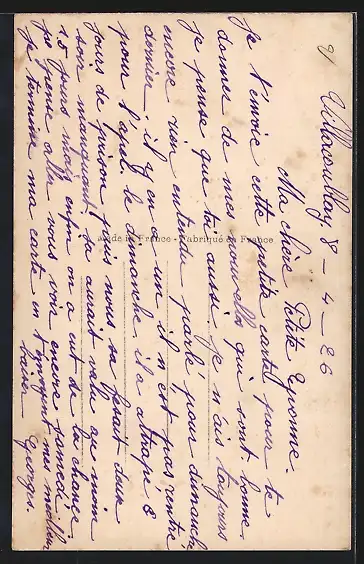 Villacoublay 8 - 4 - 26
Ma chère Petite Yvonne.
Je t'envoie cette petite carte pour te
donner de mes nouvelles qui sont bonne.
je pense que toi aussi je n'ais toujours
encore rien entendu parlé pour dimanche
dernier, il y en a un il n'est pas rentré
pour l'apel le dimanche il a attrapé 8
jours de prison puis nous se fesait deux
soir manquant sa aurait valu au moin
15 jours mais enfin on a eut de la chance.
je pense aller vous voir encore samedi
je termine ma carte en t'envoyant mes meilleur
baiser Georges
Made in France - Fabriqué en France